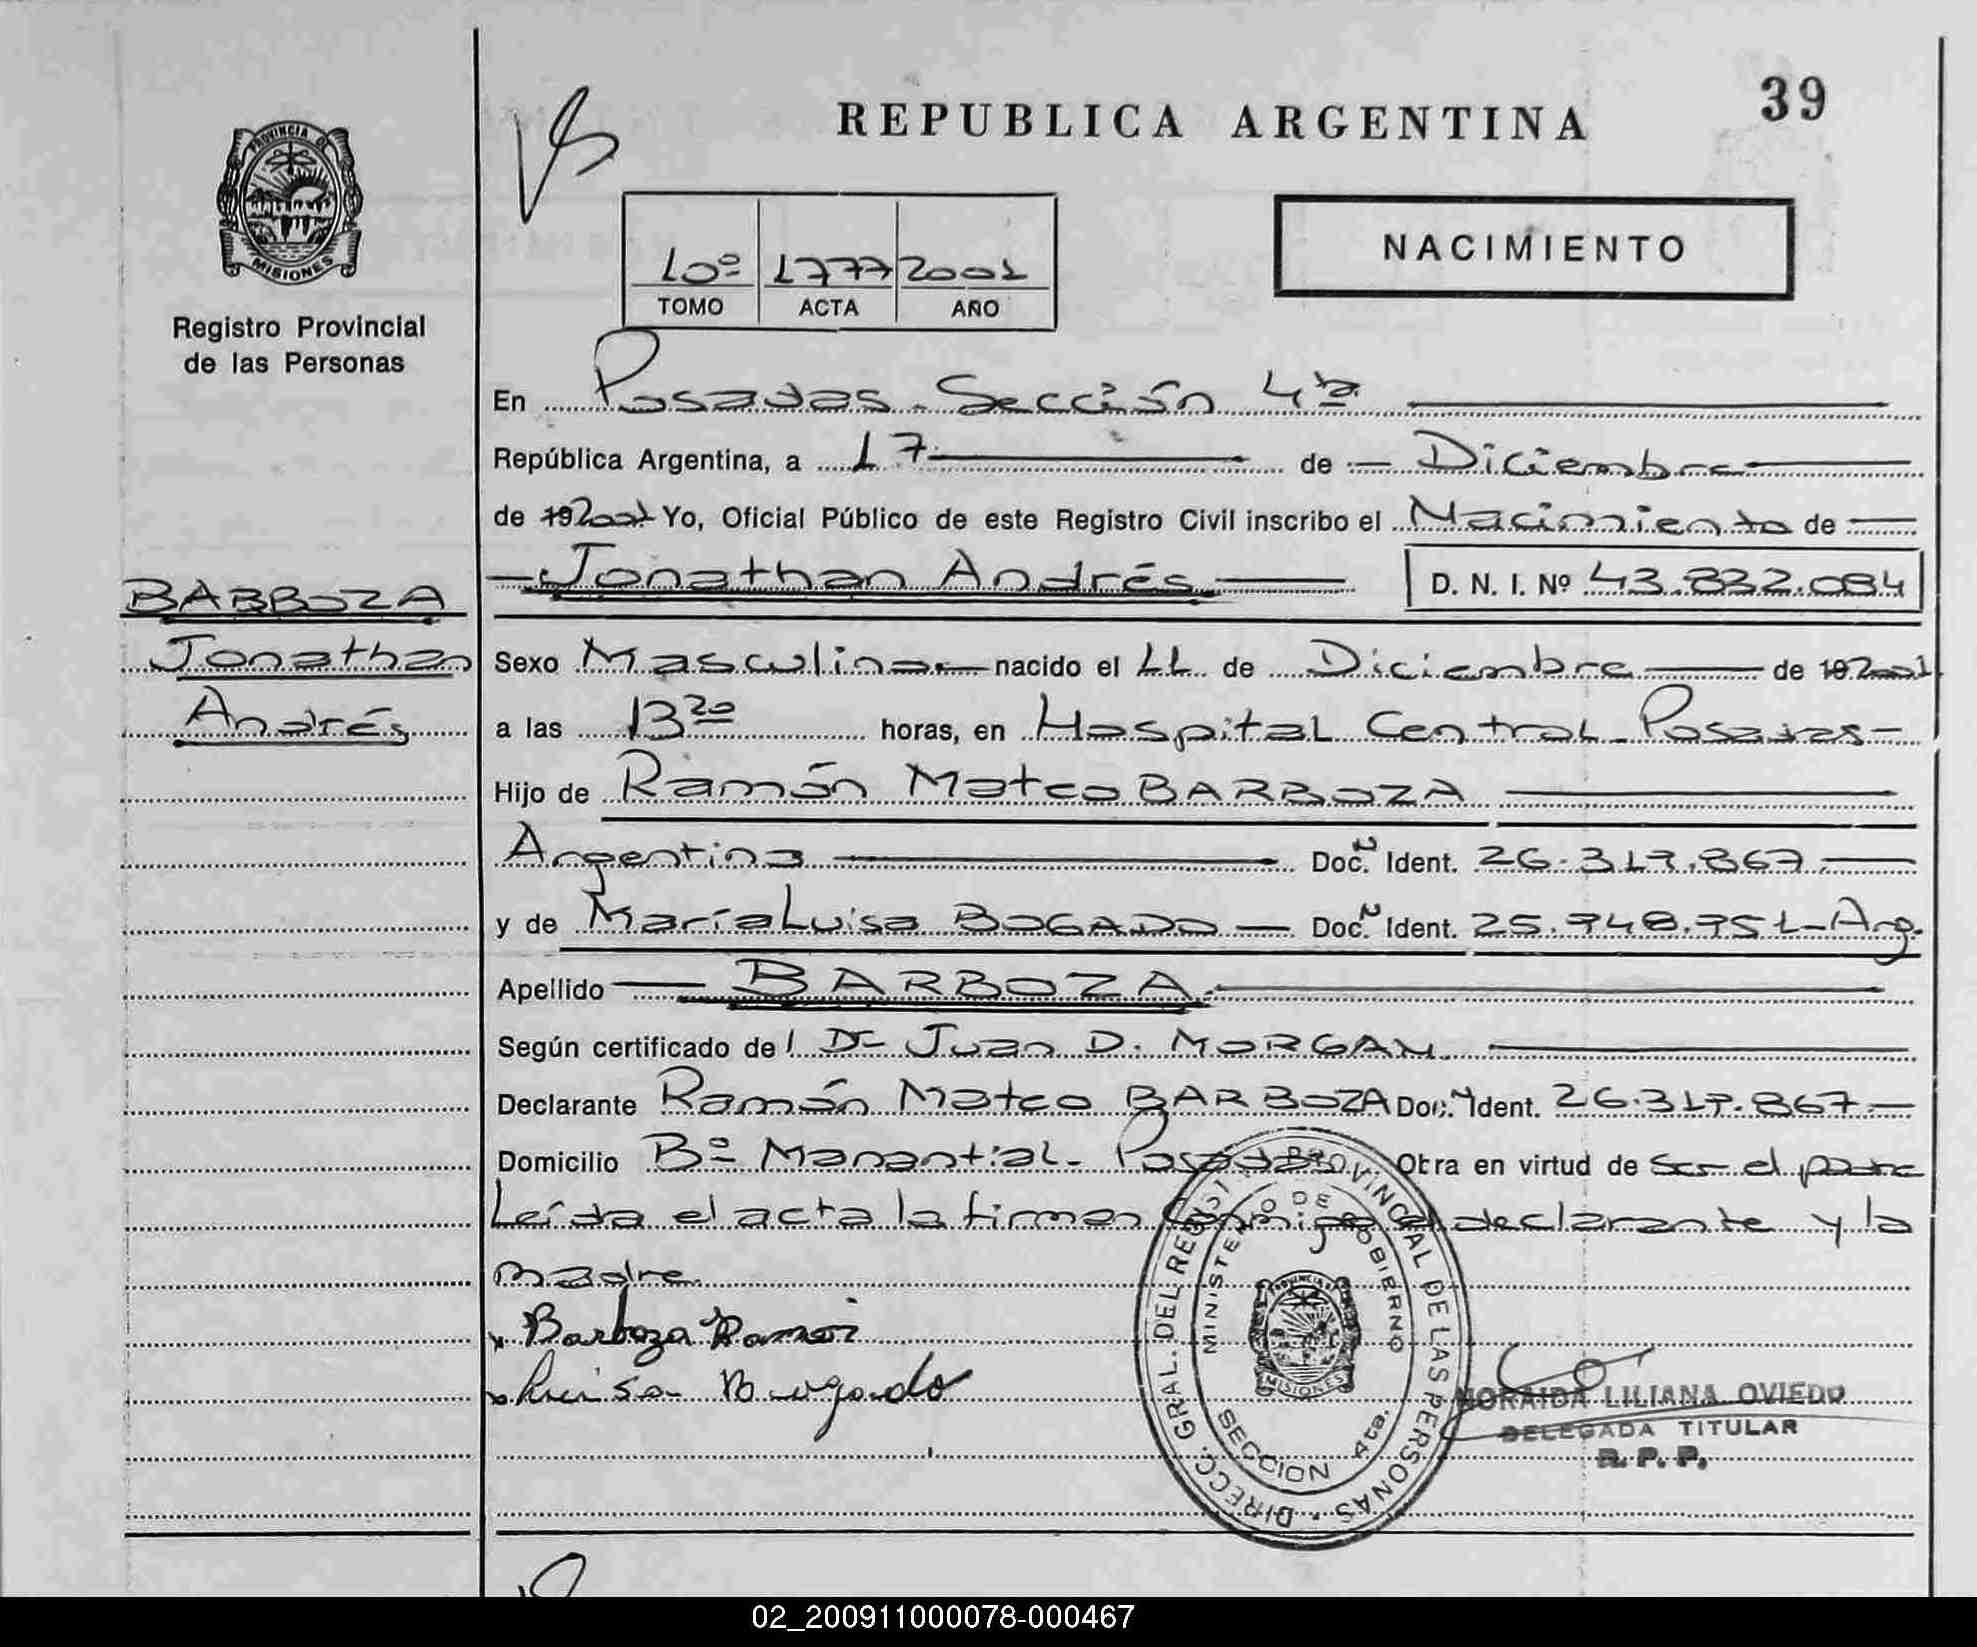 39
REPUBLICA ARGENTINA
PROVINCIA DE
MISIONES
Registro Provincial
de las Personas
10º 1777 2001
TOMO ACTA AÑO
NACIMIENTO
En Posadas - Sección 4ta
República Argentina, a 17 de Diciembre
de 19 2001 Yo, Oficial Público de este Registro Civil inscribo el Nacimiento de
Jonathan Andrés D. N. I. Nº 43.832.084
BARBOZA
Jonathan
Andrés
Sexo Masculino nacido el 11 de Diciembre de 19 2001
a las 13 20 horas, en Hospital Central - Posadas -
Hijo de Ramón Mateo BARBOZA
Argentina Doc. N Ident. 26.317.867
y de María Luisa BOGADO Doc. N Ident. 25.748.751 - Arg.
Apellido BARBOZA
Según certificado de l Dr Juan D. MORGAN
Declarante Ramón Mateo BARBOZA Doc. N Ident. 26.317.867
Domicilio Bº Manantial - Posadas Obra en virtud de ser el padre
Leída el acta la firman conmigo el declarante y la
madre
x Barboza Ramon
x Luisa Bogado
DIRECC. GRAL. DEL REGIST. PROVINCIAL DE LAS PERSONAS
MINISTERIO DE GOBIERNO
PROVINCIA
MISIONES
SECCION 4ta.
NORAIDA LILIANA OVIEDO
DELEGADA TITULAR
R. P. P.
02_200911000078-000467